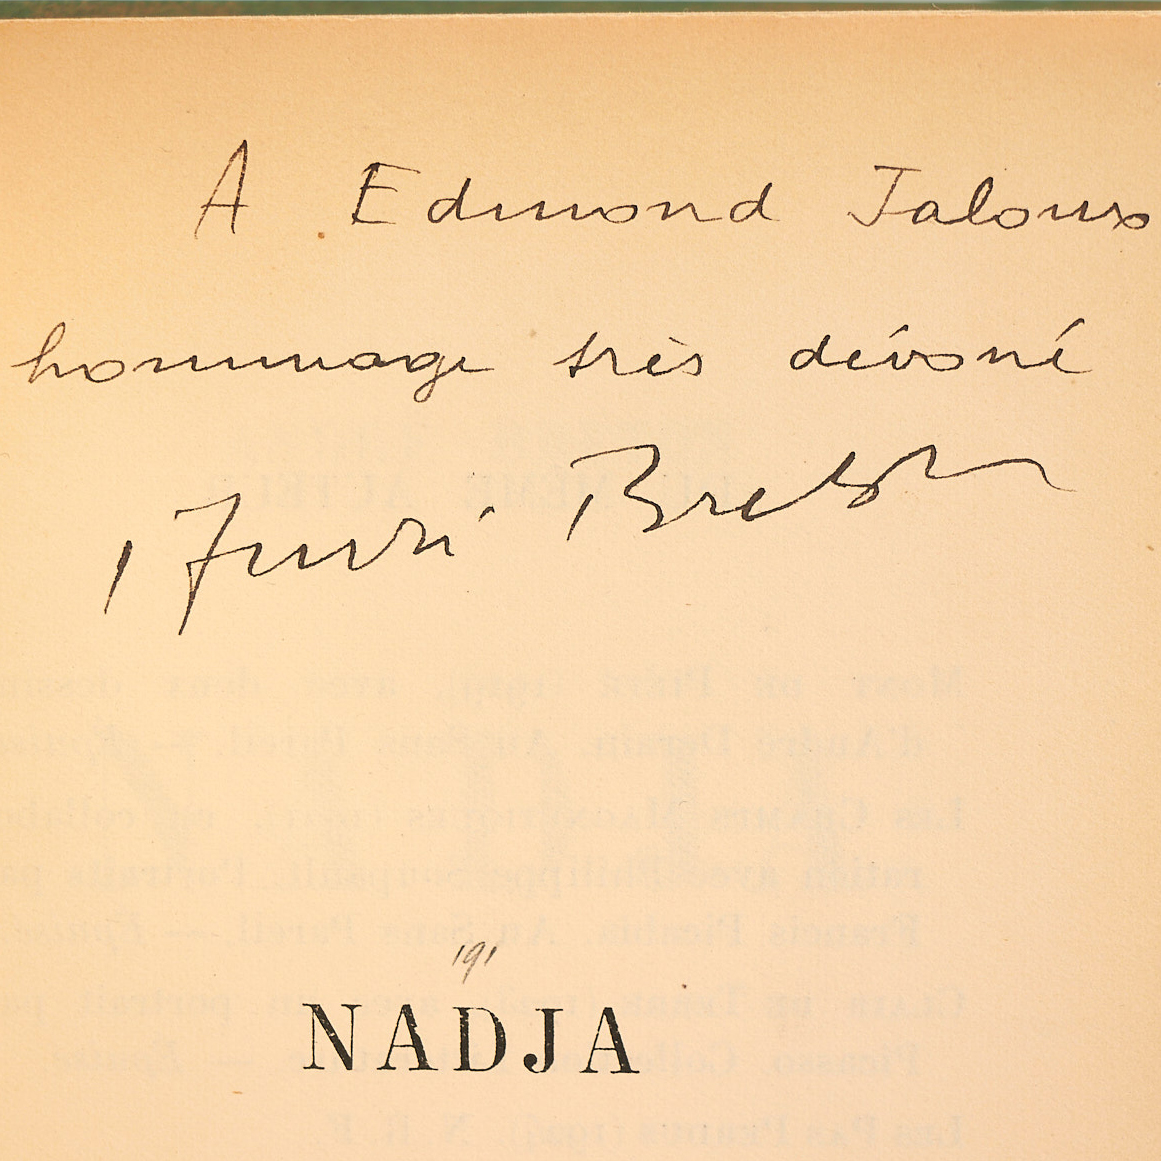 A Edmond Jaloux
hommage très dévoué
André Breton
191
NADJA